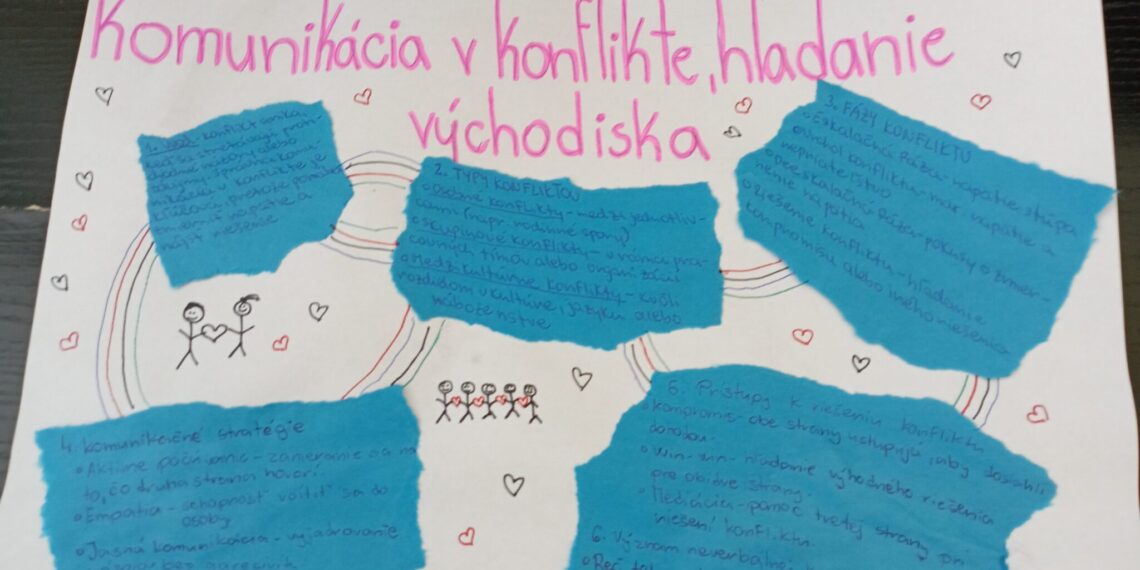 Komunikácia v konflikte, hľadanie
východiska
1. Úvod - konflikt vzniká,
keď sa stretávajú proti-
chodné názory alebo
záujmy. Správna komu-
nikácia v konflikte je
kľúčová, pretože pomáha
zmierniť napätie a
nájsť riešenie
2. TYPY KONFLIKTOV
Osobné konflikty - medzi jednotliv-
cami (napr. rodinné spory)
skupinové konflikty - v rámci pra-
covných tímov alebo organizácií
Medzikultúrne konflikty - kvôli
rozdielom v kultúre, jazyku alebo
náboženstve
3. FÁZY KONFLIKTU
Eskalačná fáza - napätie stúpa
vrchol konfliktu - max napätie a
nepriateľstvo
Deeskalačná fáza - pokusy o zmier-
nenie napätia
Riešenie konfliktu - hľadanie
kompromisu alebo iného riešenia
4. Komunikačné stratégie
Aktívne počúvanie - zameranie sa na
to, čo druhá strana hovorí
Empatia - schopnosť vcítiť sa do
osoby
Jasná komunikácia - vyjadrovanie
bez agresie
5. Prístupy k riešeniu konfliktu
Kompromis - obe strany ustupujú, aby dosiahli
dohodu.
Win-win - hľadanie výhodného riešenia
pre obidve strany.
Mediácia - pomoc tretej strany pri
riešení konfliktu.
6. Význam neverbálne
Reč